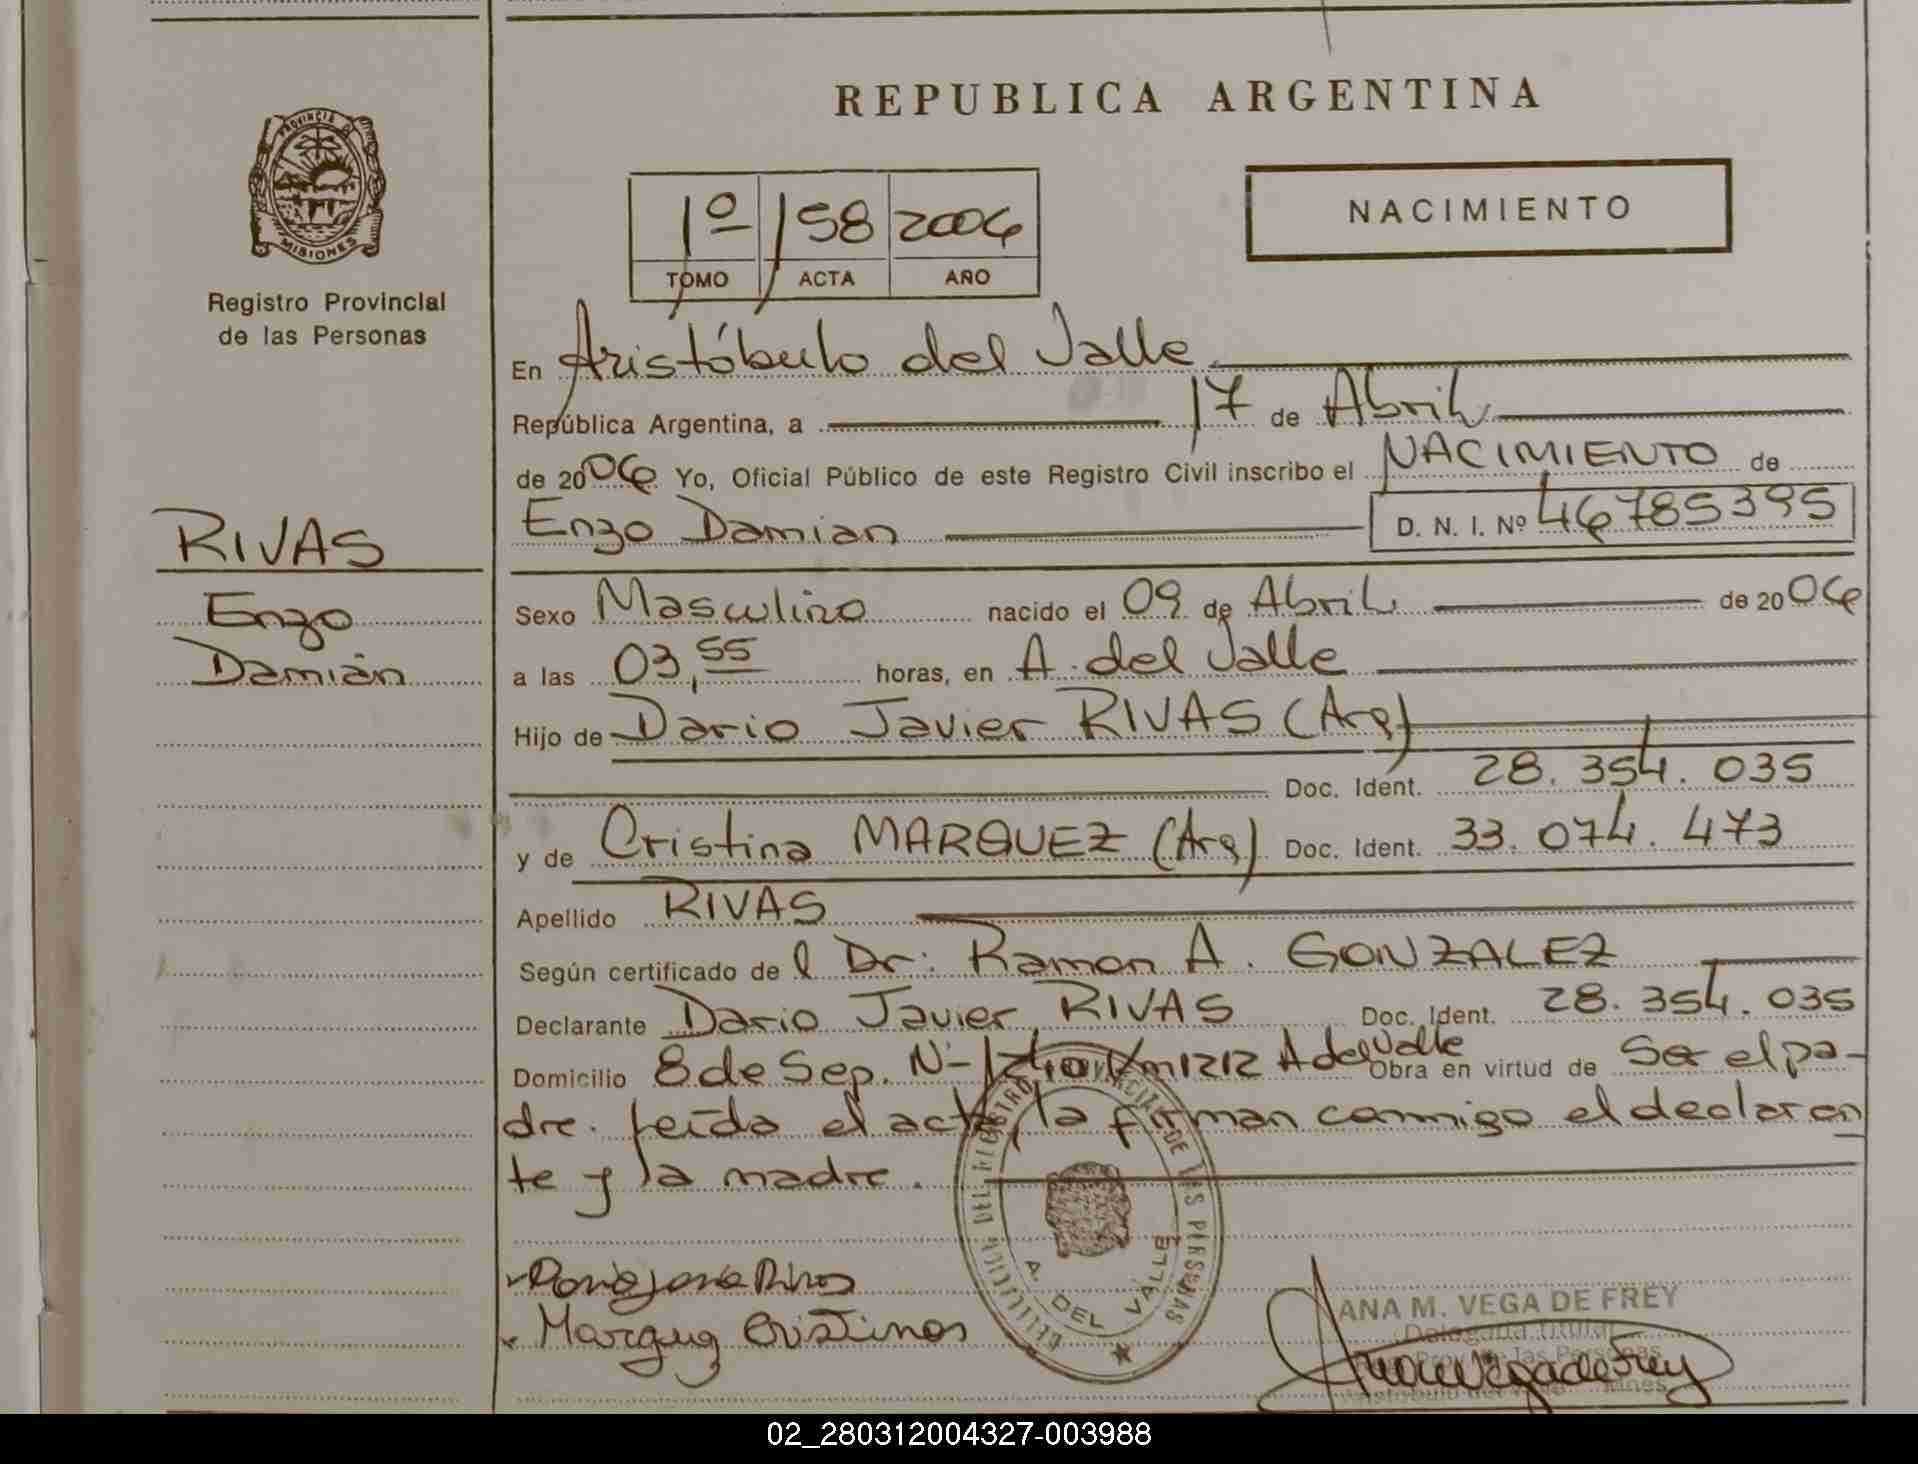 REPUBLICA ARGENTINA
PROVINCIA DE
MISIONES
Registro Provincial
de las Personas
1º 158 2006
TOMO ACTA AÑO
NACIMIENTO
En Aristóbulo del Valle
República Argentina, a 17 de Abril
de 2006 Yo, Oficial Público de este Registro Civil inscribo el NACIMIENTO de
Enzo Damian D. N. I. Nº 46785395
RIVAS
Enzo
Damián
Sexo Masculino nacido el 09 de Abril de 2006
a las 03,55 horas, en A. del Valle
Hijo de Dario Javier RIVAS (Arg)
Doc. Ident. 28.354.035
y de Cristina MARQUEZ (Arg) Doc. Ident. 33.074.473
Apellido RIVAS
Según certificado de l Dr: Ramon A. GONZALEZ
Declarante Dario Javier RIVAS Doc. Ident. 28.354.035
Domicilio 8 de Sep. Nº Km 1212 A del Valle Obra en virtud de Ser el pa-
dre. Leída el acta, la firman conmigo el declaran
te y la madre.
DE LAS PERSONAS
A. DEL VALLE
Marquez Cristina
ANA M. VEGA DE FREY
Delegada Titular
las Personas
02_280312004327-003988